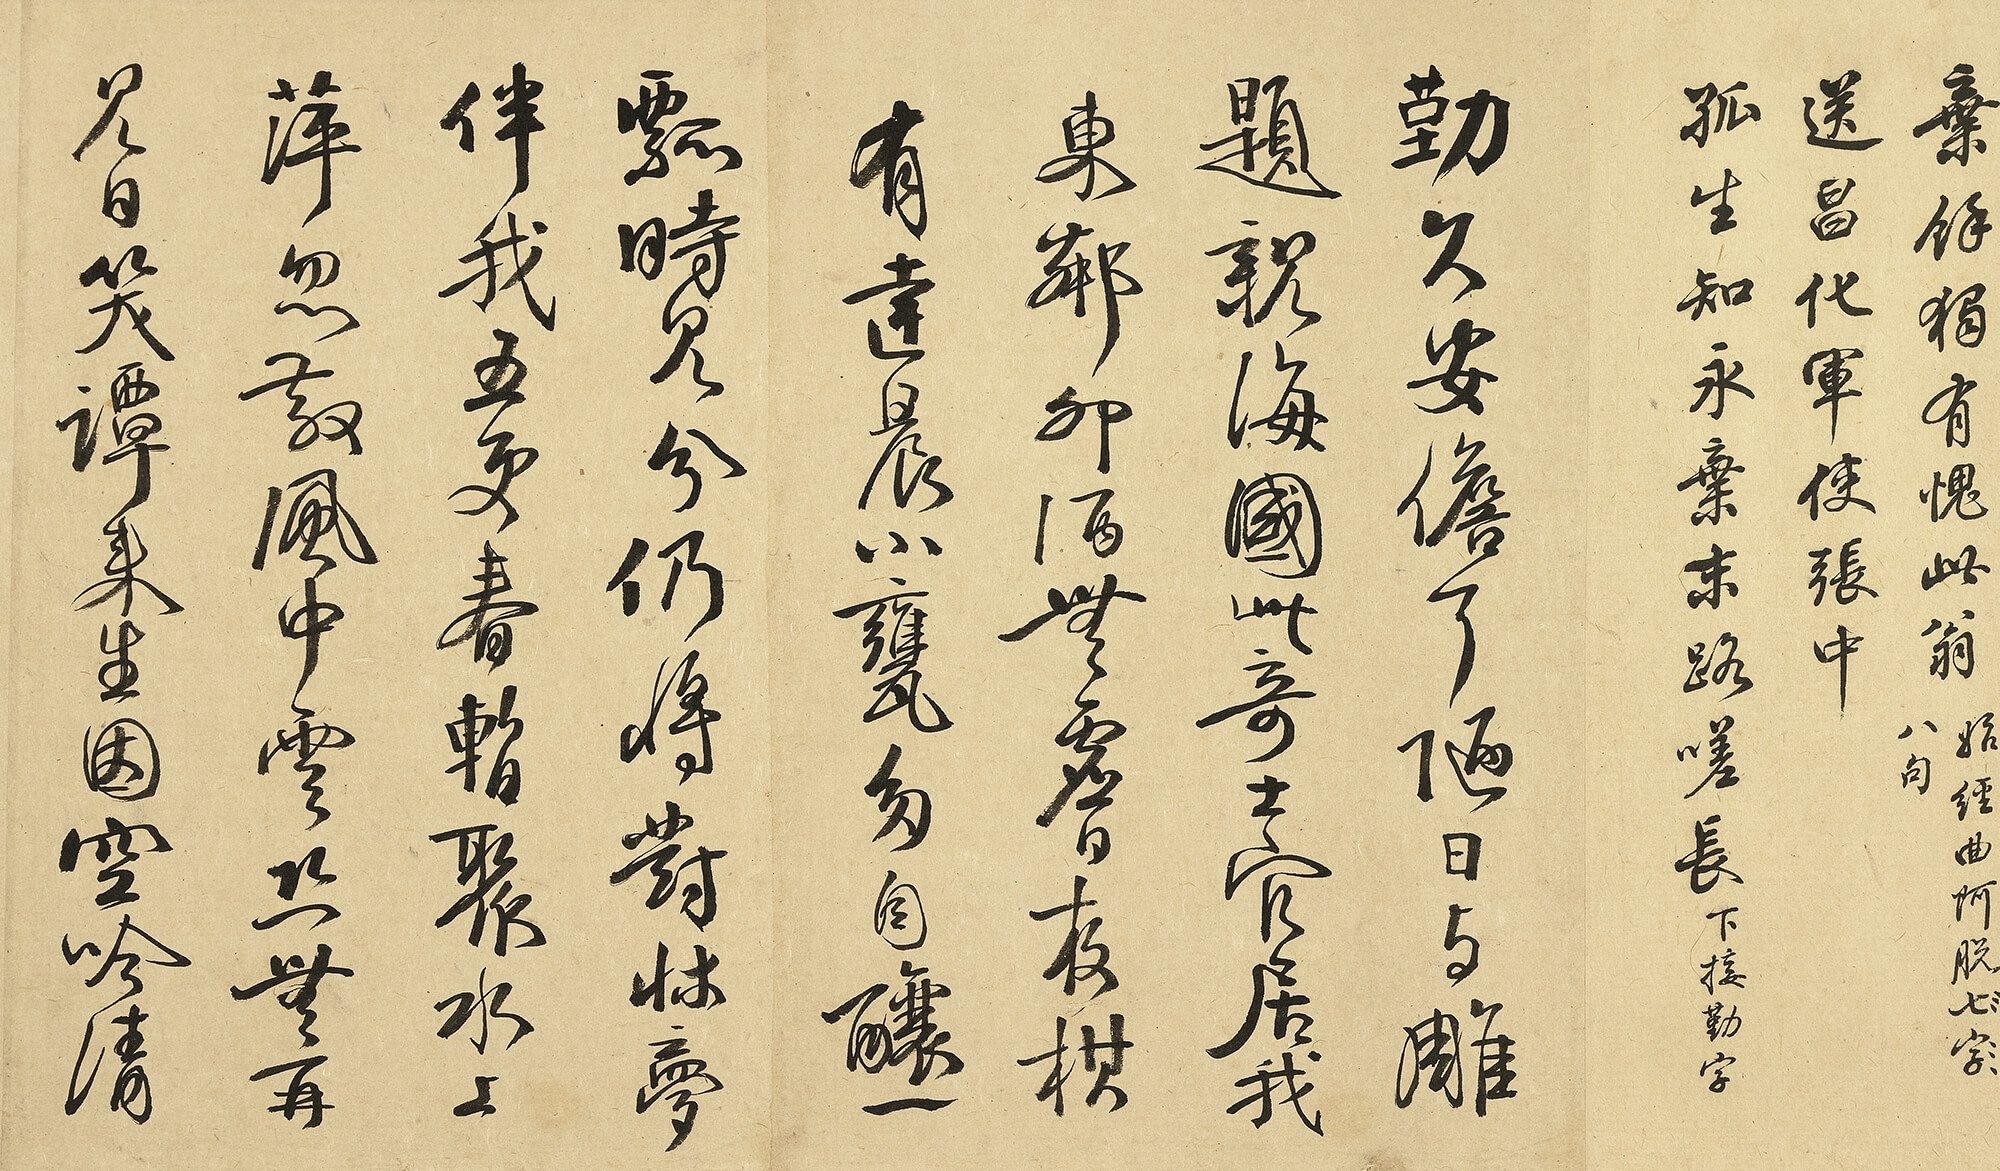 棄餘獨有愧此翁
始經曲阿脫七字
八句
送昌化軍使張中
孤生知永棄末路嗟長下接勤字
勤久安儋耳陋日与雕
題親海國此奇士官居我
東鄰卯酒無虛日夜棋
有達晨小甕多自釀一
瓢時見分仍將對牀夢
伴我五更春暫聚水上
萍忽散風中雲恐無再
見日笑譚來生因空吟清